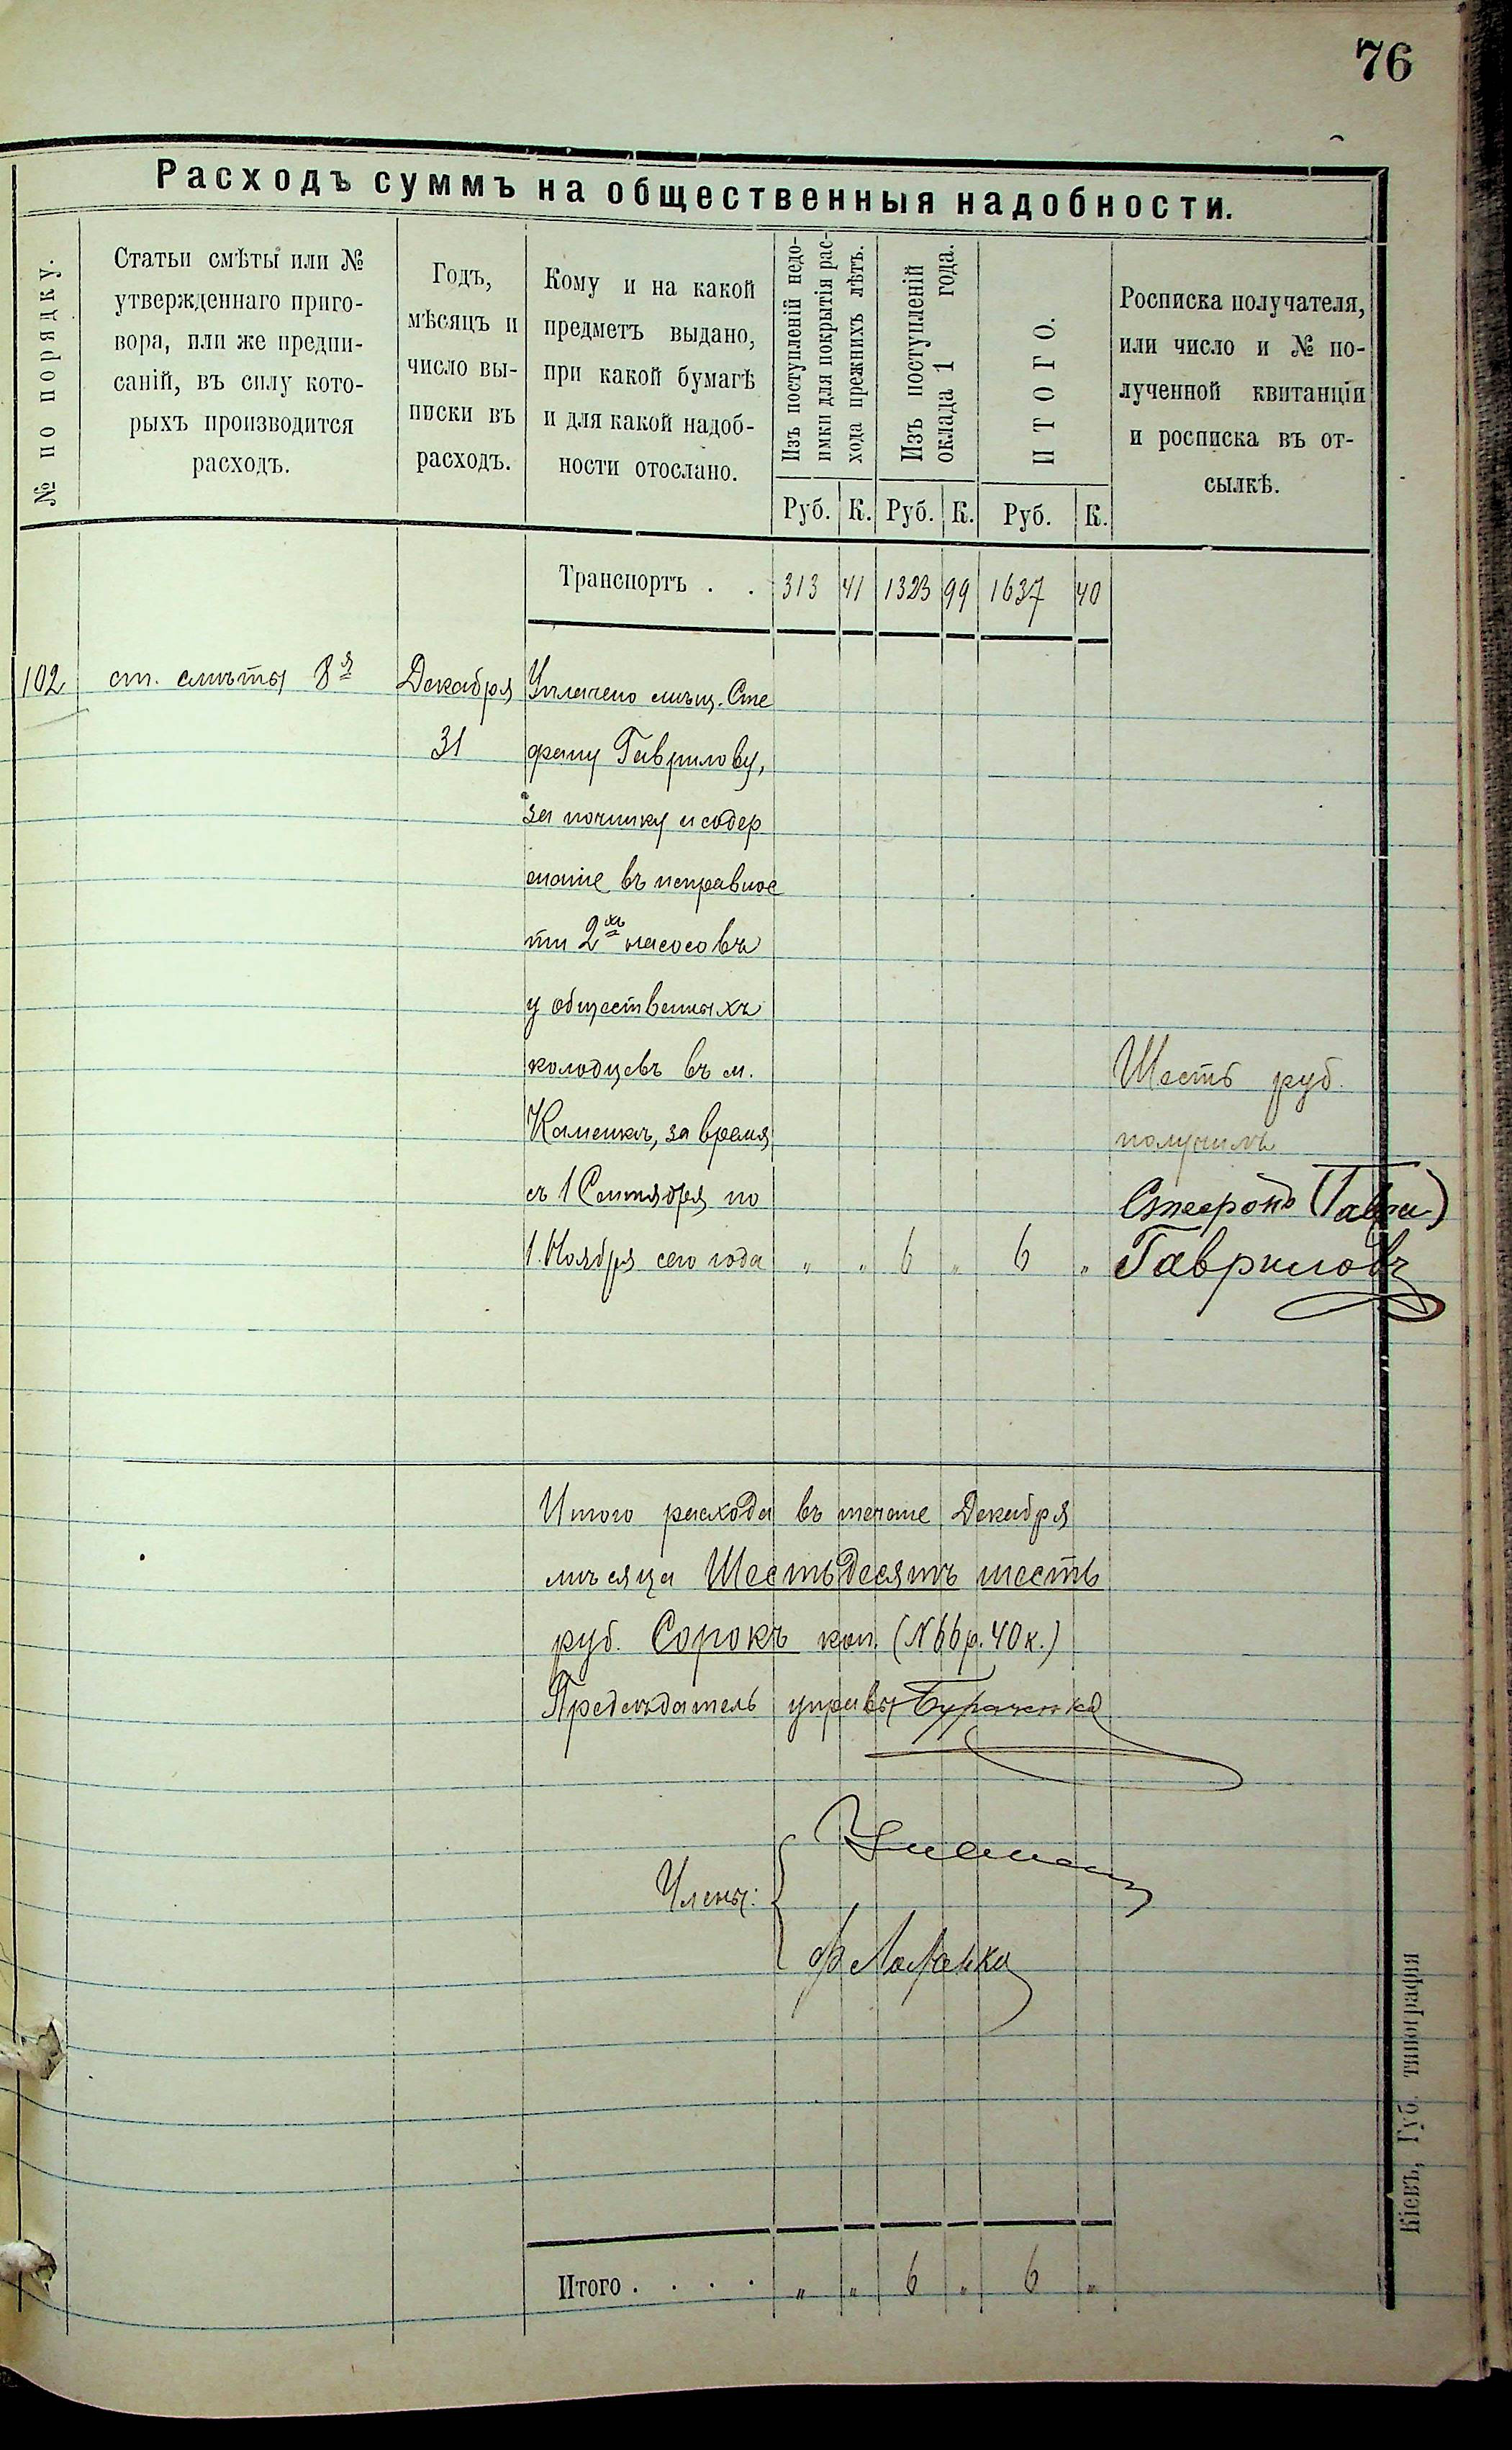 76
Расходъ суммъ на общественныя надобности.
№ по порядку.
Статьи смѣты или №
утвержденнаго приго-
вора, или же предпи-
саній, въ силу кото-
рыхъ производится
расходъ.
Годъ,
мѣсяцъ и
число вы-
писки въ
расходъ.
Кому и на какой
предметъ выдано,
при какой бумагѣ
и для какой надоб-
ности отослано.
Изъ поступленій недо-
имки для покрытія рас-
хода прежнихъ лѣтъ.
Изъ поступленій
оклада 1 года.
ИТОГО.
Росписка получателя,
или число и № по-
лученной квитанціи
и росписка въ от-
сылкѣ.
Руб. К. Руб. К. Руб. К.
Транспортъ . . 313 41 1323 99 1637 40
102 ст. смѣты 8я Декабря Уплачено мѣщ. Сте
31 фану Гаврилову,
за починку и содер
жаніе въ исправнос
ти 2хъ насосовъ
у общественныхъ
колодцевъ въ м.
Каменкѣ, за время
съ 1 Сентября по
1 Ноября сего года " " 6 " 6 "
Шесть руб.
получилъ
Стефонъ (Гаври)
Гавриловъ
Итого расхода въ теченіе Декабря
мѣсяца Шестьдесятъ шесть
руб. Сорокъ коп. (№ 66 р. 40 к.)
Предсѣдатель управы
Члены:
Итого . . . . " " 6 " 6 "
Кіевъ, Губ. типографія